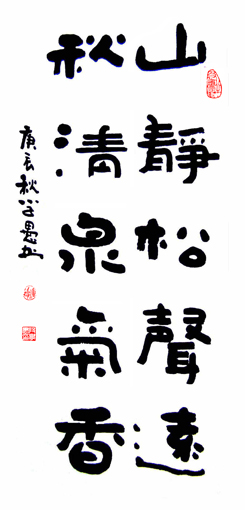 山靜松聲遠
秋清泉氣香
庚辰秋